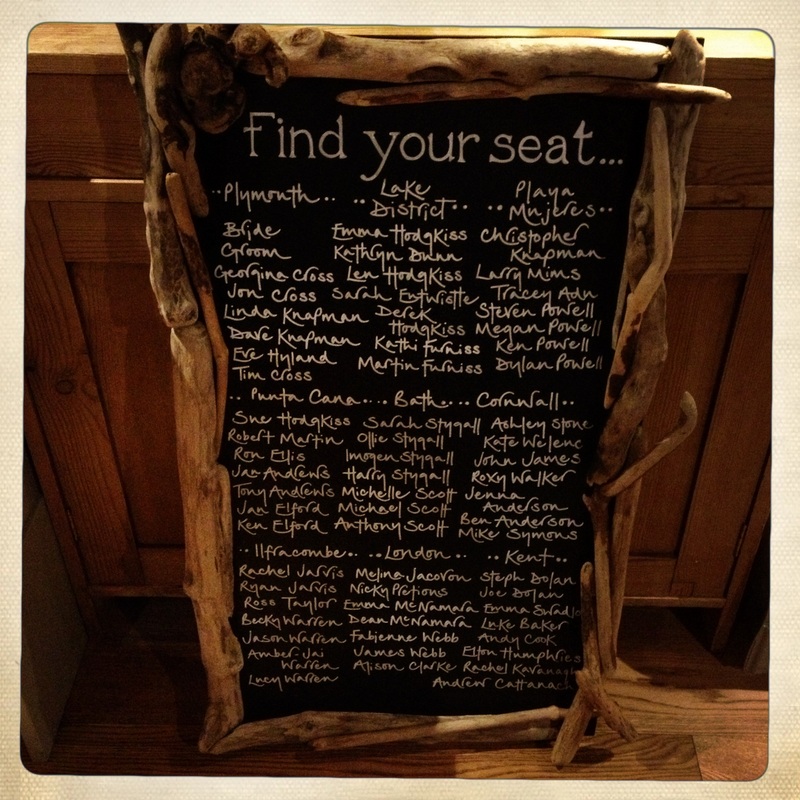 Find your seat...
..Plymouth..
Bride
Groom
Georgina Cross
Jon Cross
Linda Knapman
Dave Knapman
Eve Hyland
Tim Cross
Lake
..District..
Emma Hodgkiss
Kathryn Dunn
Len Hodgkiss
Sarah Entwistle
Derek
Hodgkiss
Kathi Furniss
Martin Furniss
Playa
..Mujeres..
Christopher
Knapman
Larry Mims
Tracey Adn
Steven Powell
Megan Powell
Ken Powell
Dylan Powell
..Punta Cana..
Sue Hodgkiss
Robert Martin
Ron Ellis
Jan Andrews
Tony Andrews
Jan Elford
Ken Elford
..Bath..
Sarah Stygall
Ollie Stygall
Imogen Stygall
Harry Stygall
Michelle Scott
Michael Scott
Anthony Scott
..Cornwall..
Ashley Stone
Kate Welenc
John James
Roxy Walker
Jenna
Anderson
Ben Anderson
Mike Symons
..Ilfracombe..
Rachel Jarvis
Ryan Jarvis
Ross Taylor
Becky Warren
Jason Warren
Amber-Jai
Warren
Lucy Warren
..London..
Melina Jacovou
Nicky Pretious
Emma McNamara
Dean McNamara
Fabienne Webb
James Webb
Alison Clarke
..Kent..
Steph Dolan
Joe Dolan
Emma
Luke Baker
Andy Cook
Elton Humphries
Rachel Kavanagh
Andrew Cattanach